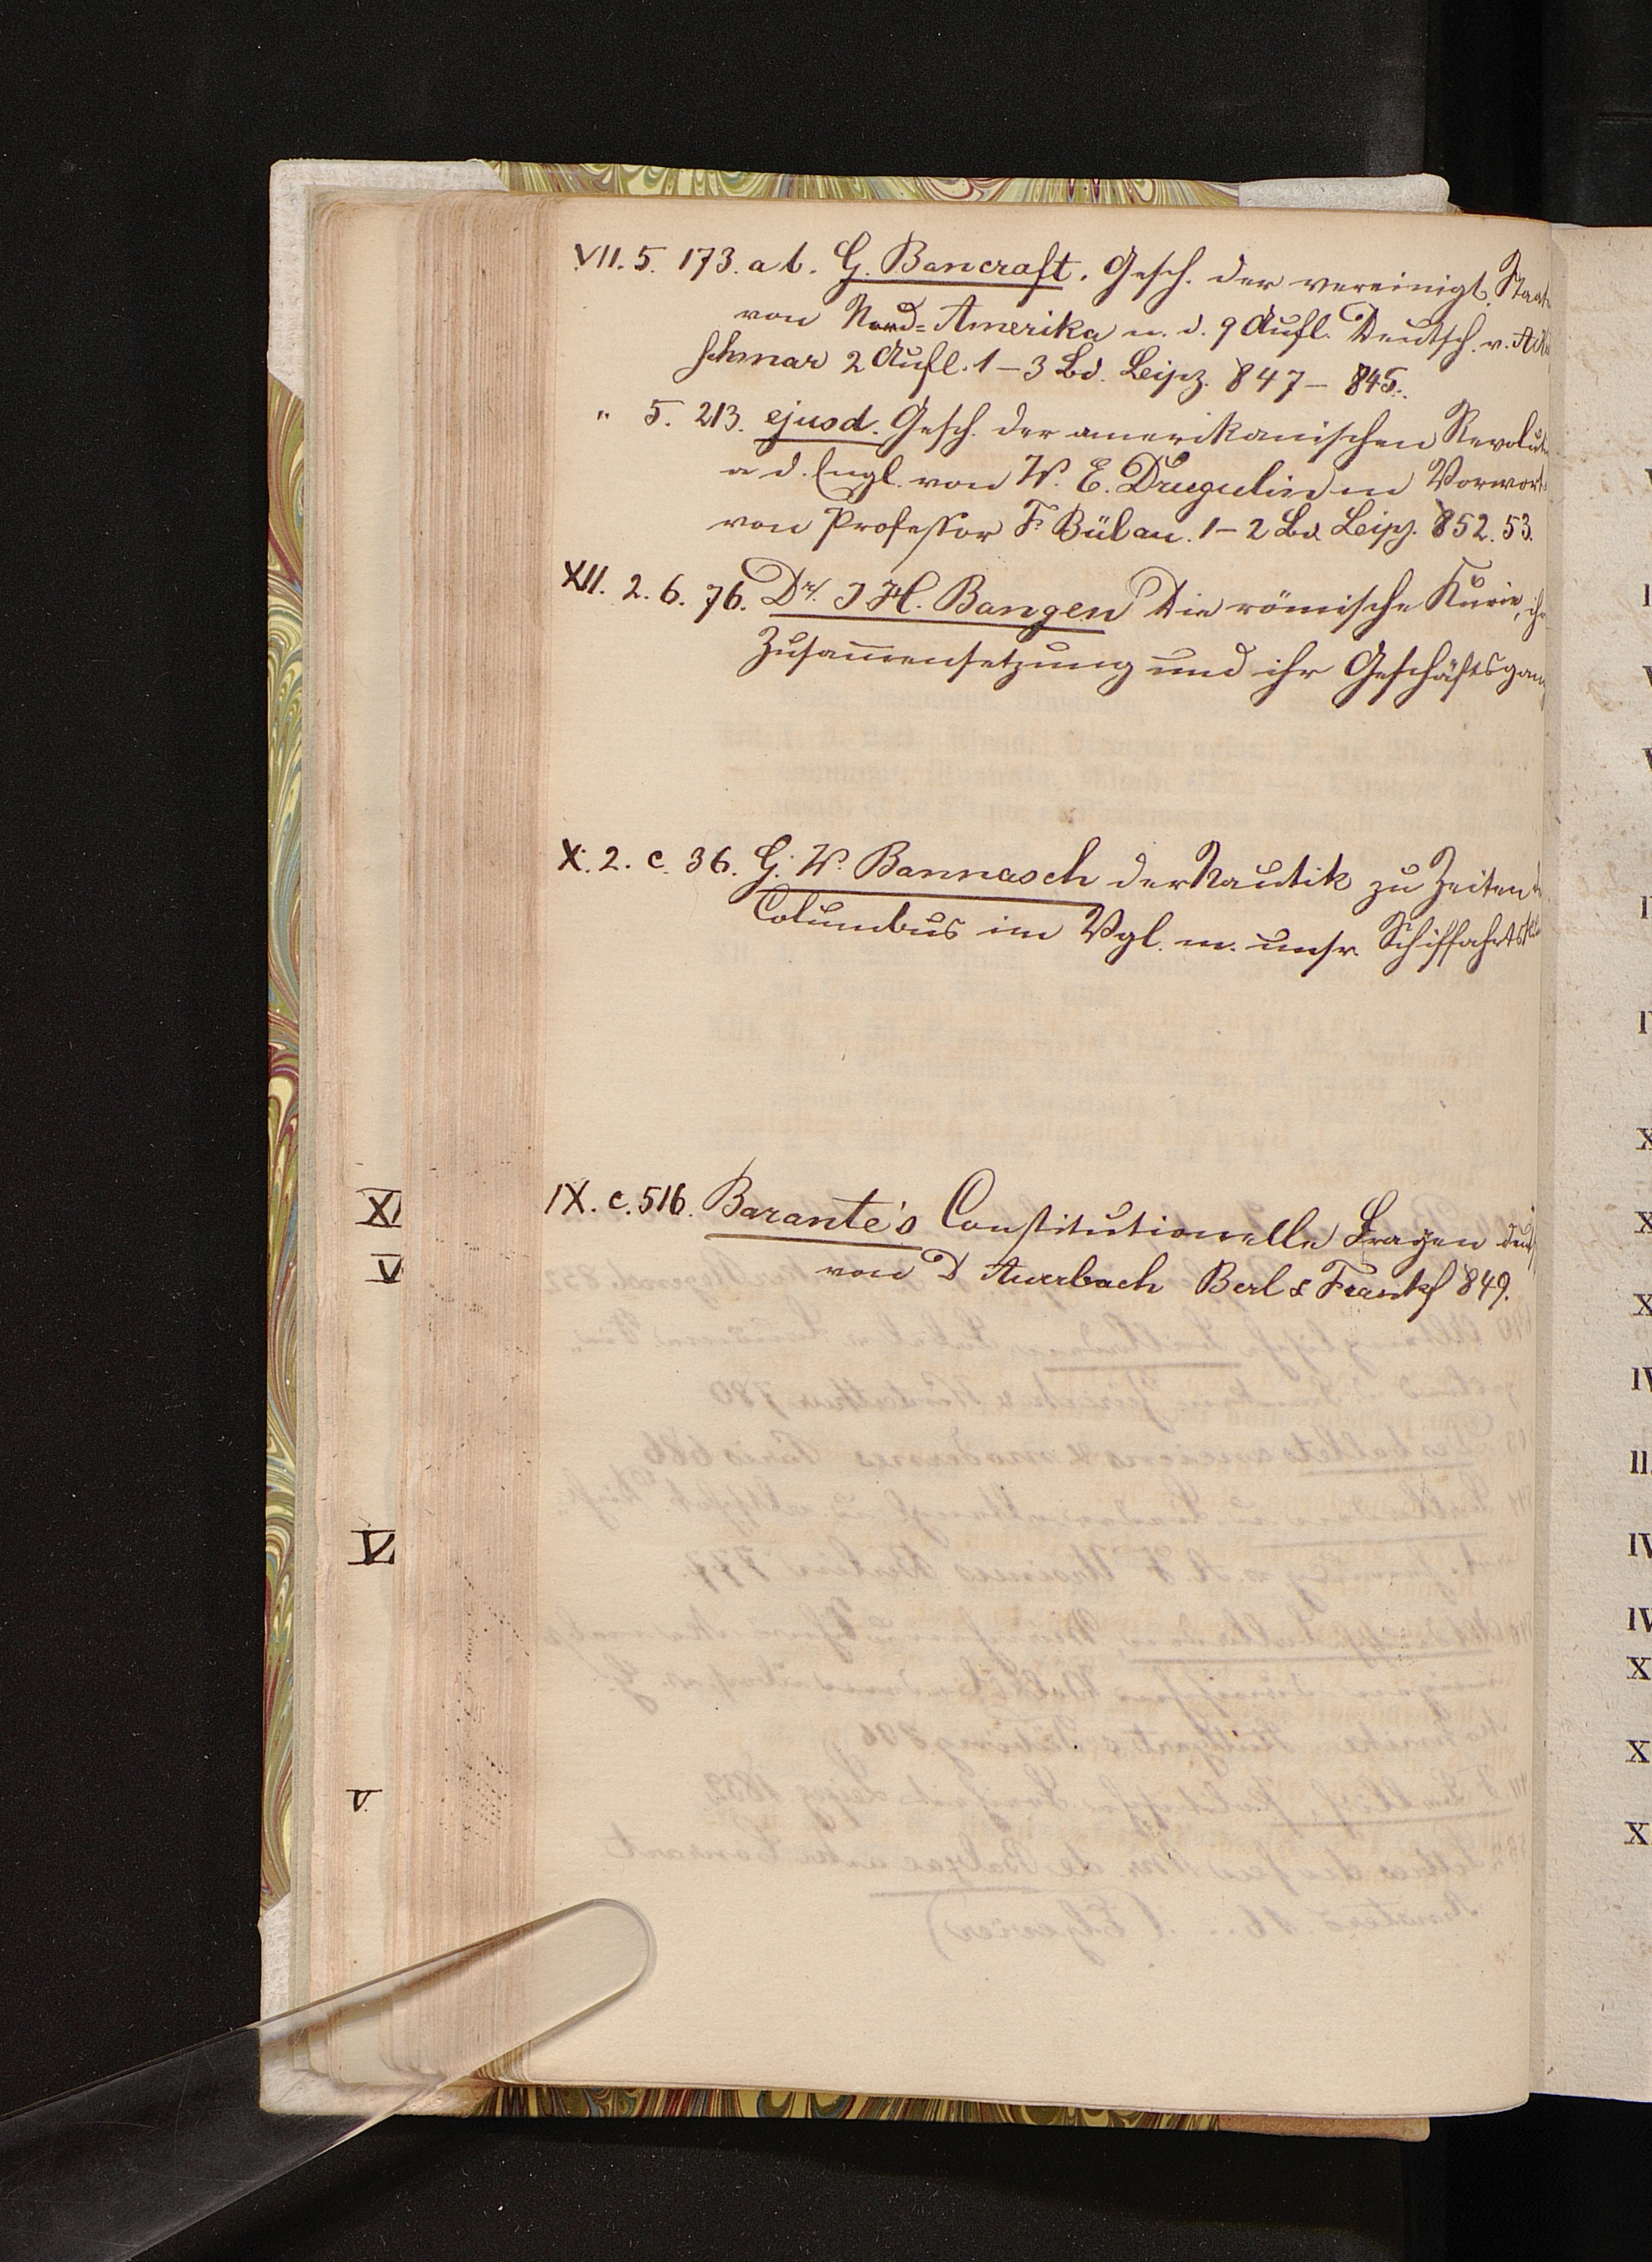 VII. 5. 173. a b. G. Bancraft. Gesch. der vereinigt. Staat
von Nord-Amerika n. d. 9 Aufl. Deutsch. v.
schmar 2 Aufl. 1-3 Bd. Leipz. 847-845.
" 5. 213. ejusd. Gesch. der amerikanischen Revolut
a d. Engl. von W. E. Drugulin m Vorwort
von Professor F. Bülau. 1-2 Bd. Leipz. 852. 53.
XII. 2. 6. 76. Dr. J H. Bangen Die römische Kurie, ihr
Zusammensetzung und ihr Geschäftsgang
X. 2. c. 36. G. W. Bannasch der Nautik zu Zeiten
Columbus im Vgl. m. unsr. Schiffahrts
IX. c. 516. Barante's Constitutionelle Fragen deutsch
von D Auerbach Berl & Frankf 849.
XI
V
V
V.